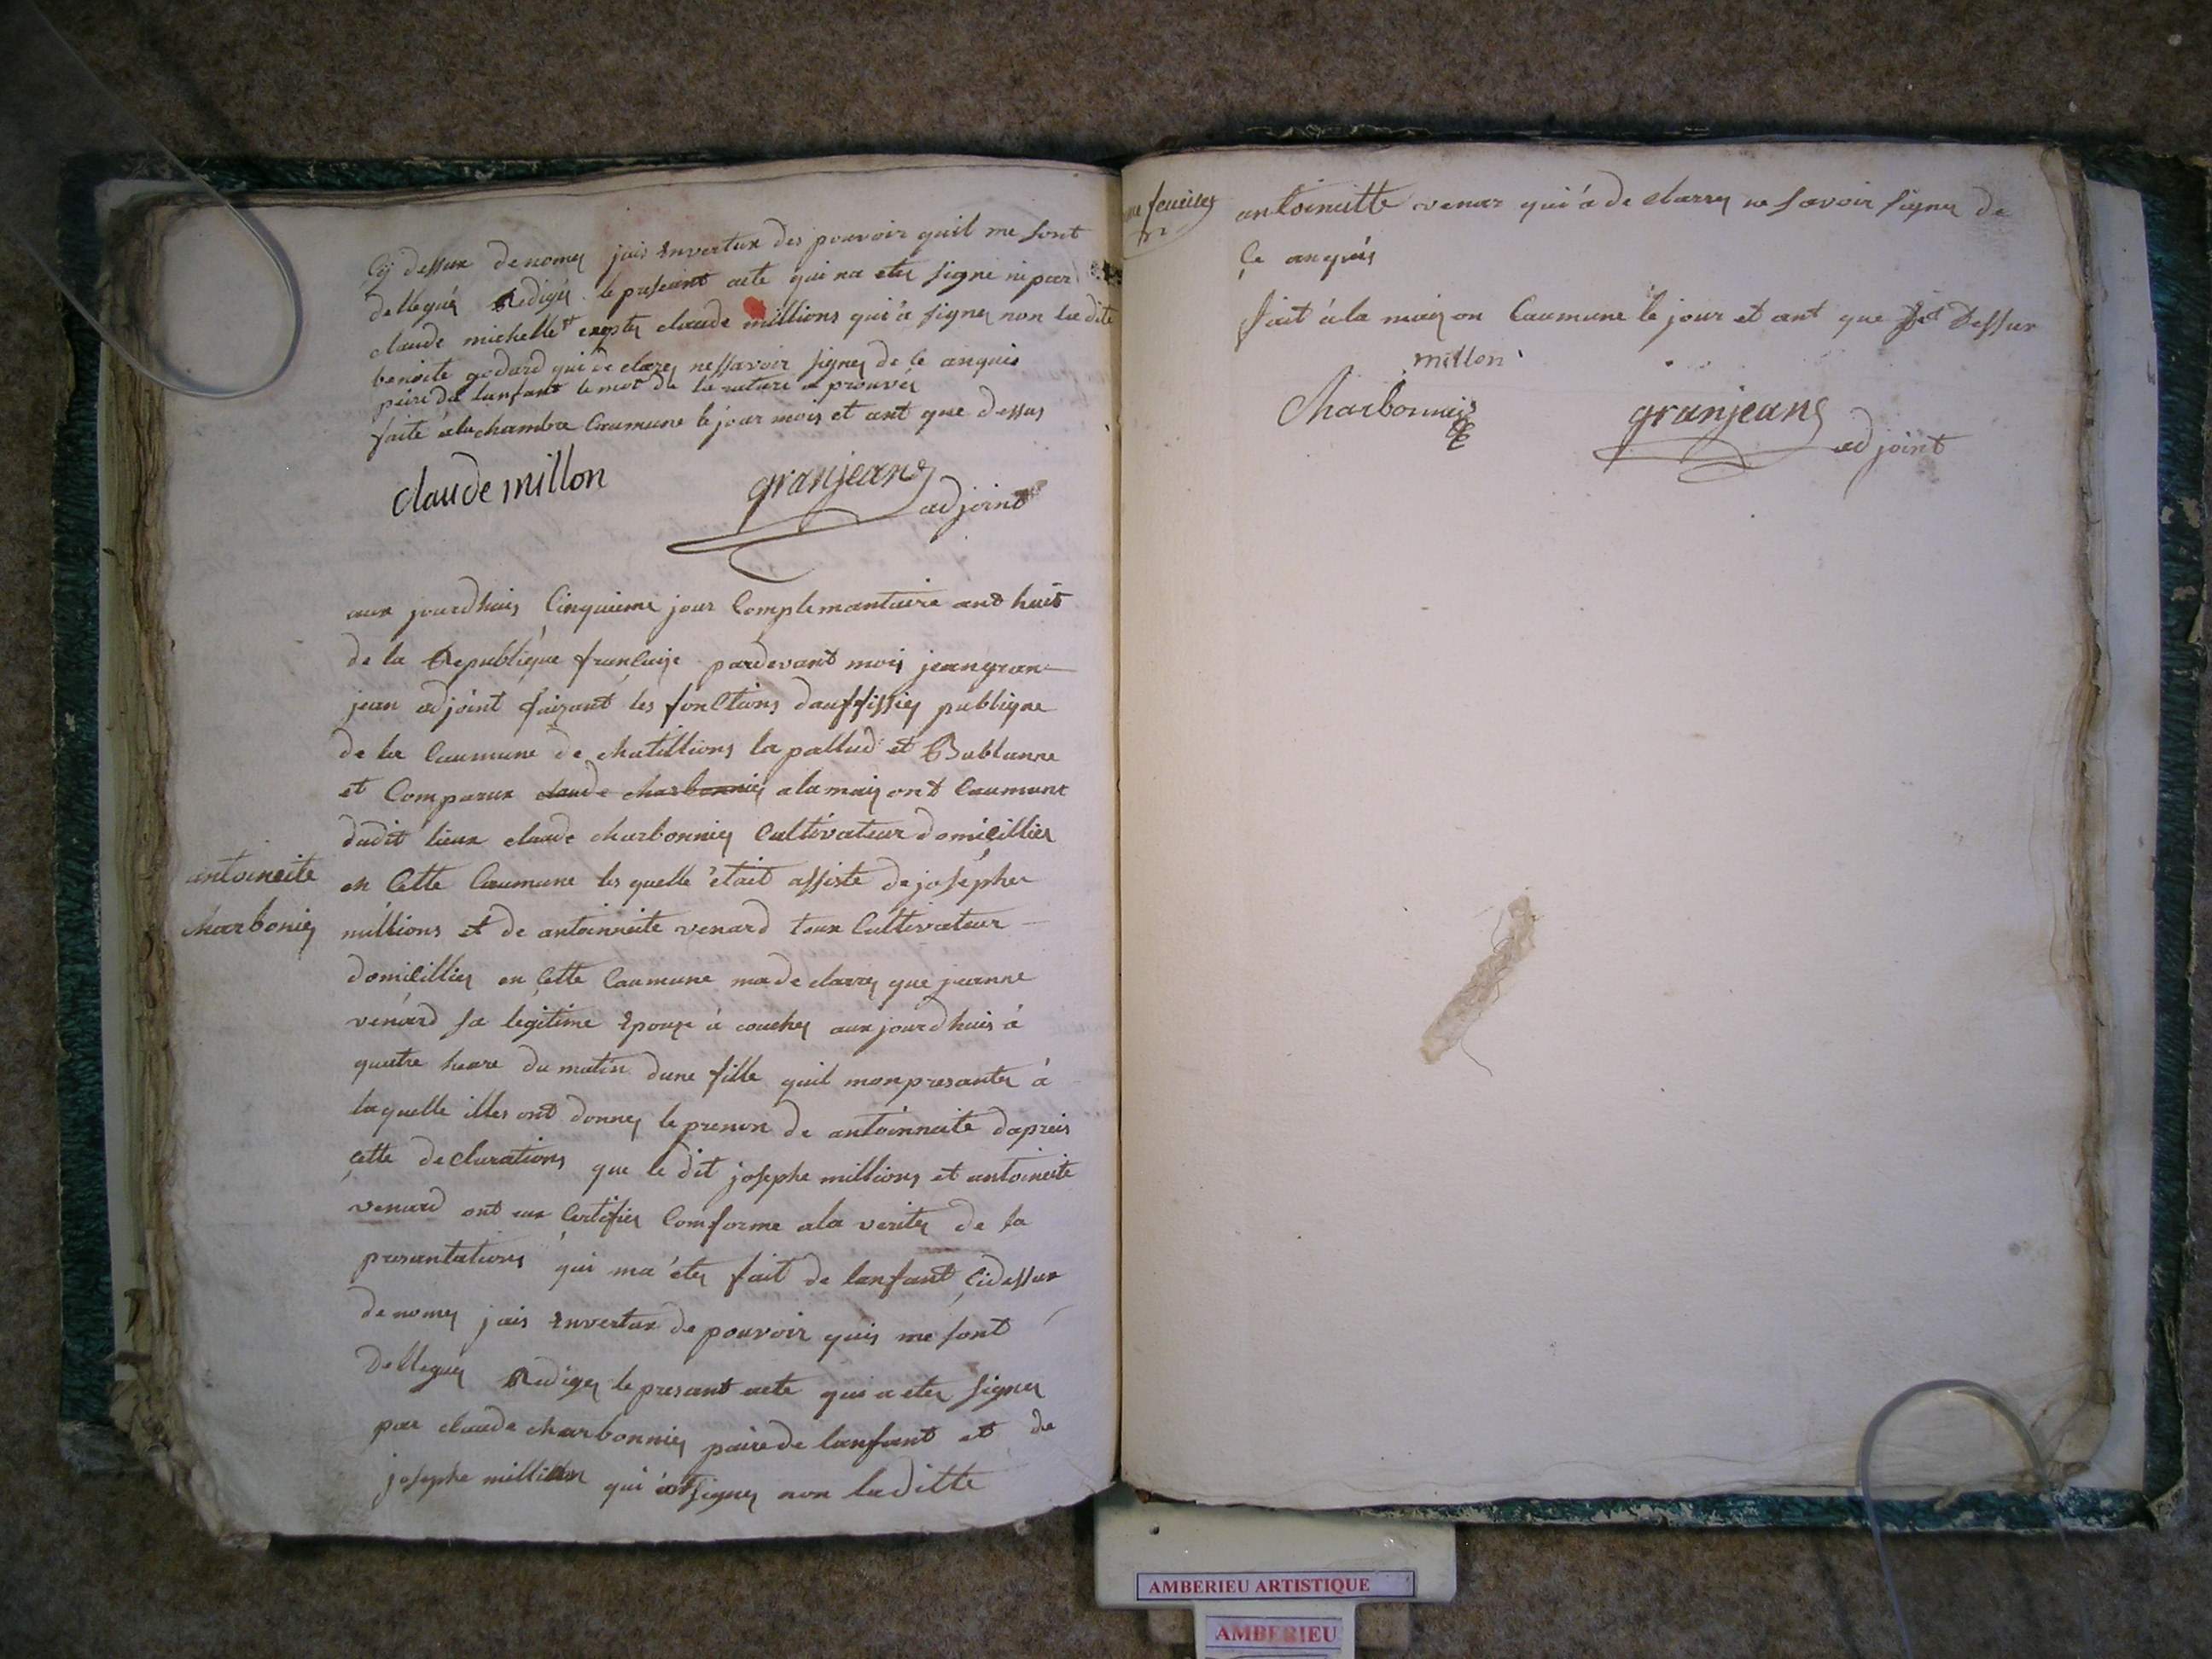 Cÿ dessux denomeÿ jais Envertux des pouvoir quil me sont
dellegués Redigés le preseant acte qui na etes signe ni par
claude michellet exepter claude millions qui a signeÿ non la dite
benoite godard qui de clareÿ nessavoir signeÿ de le anquis
paire de lanfant le mot de la rature a prouvés
faite ala chambre Caumune le jour mois et ant que dessus
claude millon granjeans
adjoint
aux jourdhuiÿ Cinquieme jour Complemantaire ant huit
de la Republique francaise pardevant moiÿ jean gran
jean adjoint faizant les fonctions dauffissieÿ publique
de la Caumune de chatillions la pallud et Bublanne
et Comparux claude charbonnieÿ a la maiz ont Caumune
dudit lieux claude charbonnieÿ Cultivateur domicillier
antoineite
en Cette Caumune les quelle était assiste de josephe
charbonieÿ
millions et de antoinneite venard toux Cultivateur
domicillieÿ en Cette Caumune ma de clarreÿ que jeanne
venard sa legitime Epouze à coucheÿ aux jourdhuis à
quatre heure du matin dune fille quil monpresanter à
laquelle illes ont donneÿ le prenon de antoinneite dapreis
cette declarations que le dit josephe millions et antoineite
venard ont eux Certifier Comforme ala veriteÿ de la
presantations qui ma éteÿ fait de lanfant Cidessux
denomeÿ jais Envertux de pouvoir quis me sont
dellegueÿ Redigeÿ le presant acte qui a etes signes
par claude charbonnieÿ paire de lanfant et de
josephe million qui à signeÿ non laditte
feuilley
antoinette venar qui à de clarreÿ ne savoir signeÿ de
Ce anquis
fait à la maiz on Caumune le jour et ant que dessux
millon
Charbonnier granjeans
adjoint
AMBERIEU ARTISTIQUE
AMBERIEU